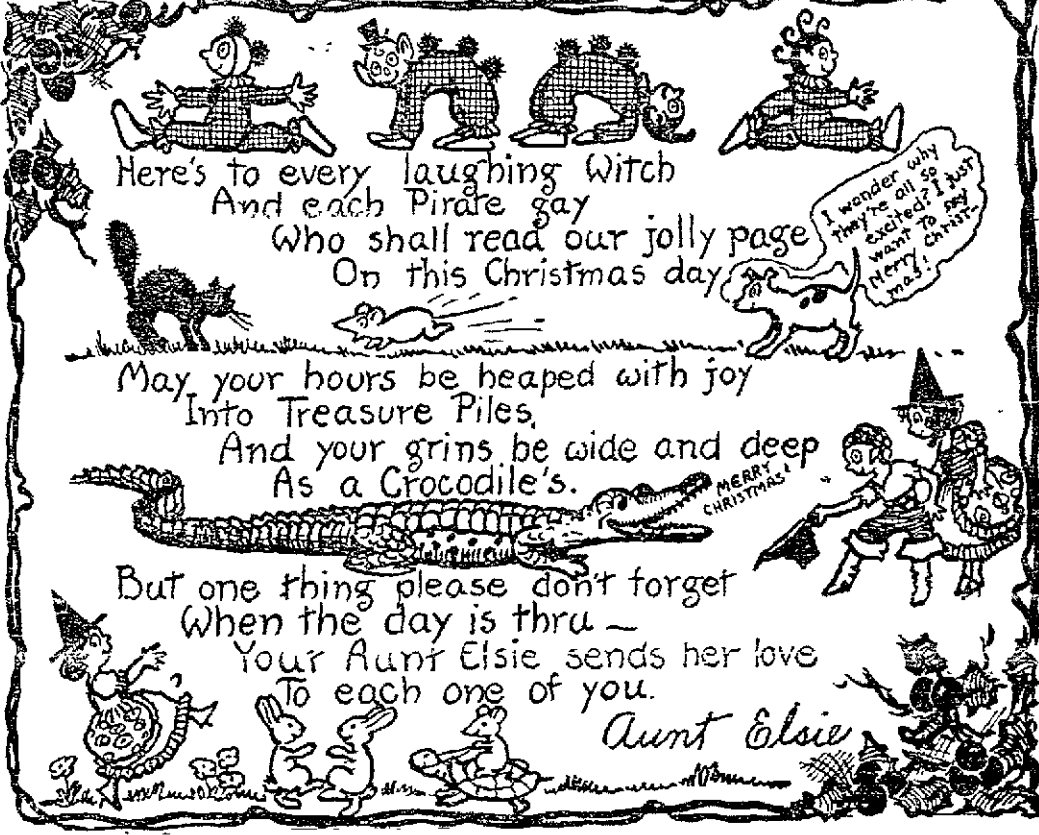 Here's to every laughing Witch
And each Pirate gay
Who shall read our jolly page
On this Christmas day
I wonder why
they're all so
excited? I just
want to say
Merry Christ-
mas!
May your hours be heaped with joy
Into Treasure Piles,
And your grins be wide and deep
As a Crocodile's.
MERRY
CHRISTMAS!
But one thing please don't forget
When the day is thru —
Your Aunt Elsie sends her love
To each one of you.
Aunt Elsie